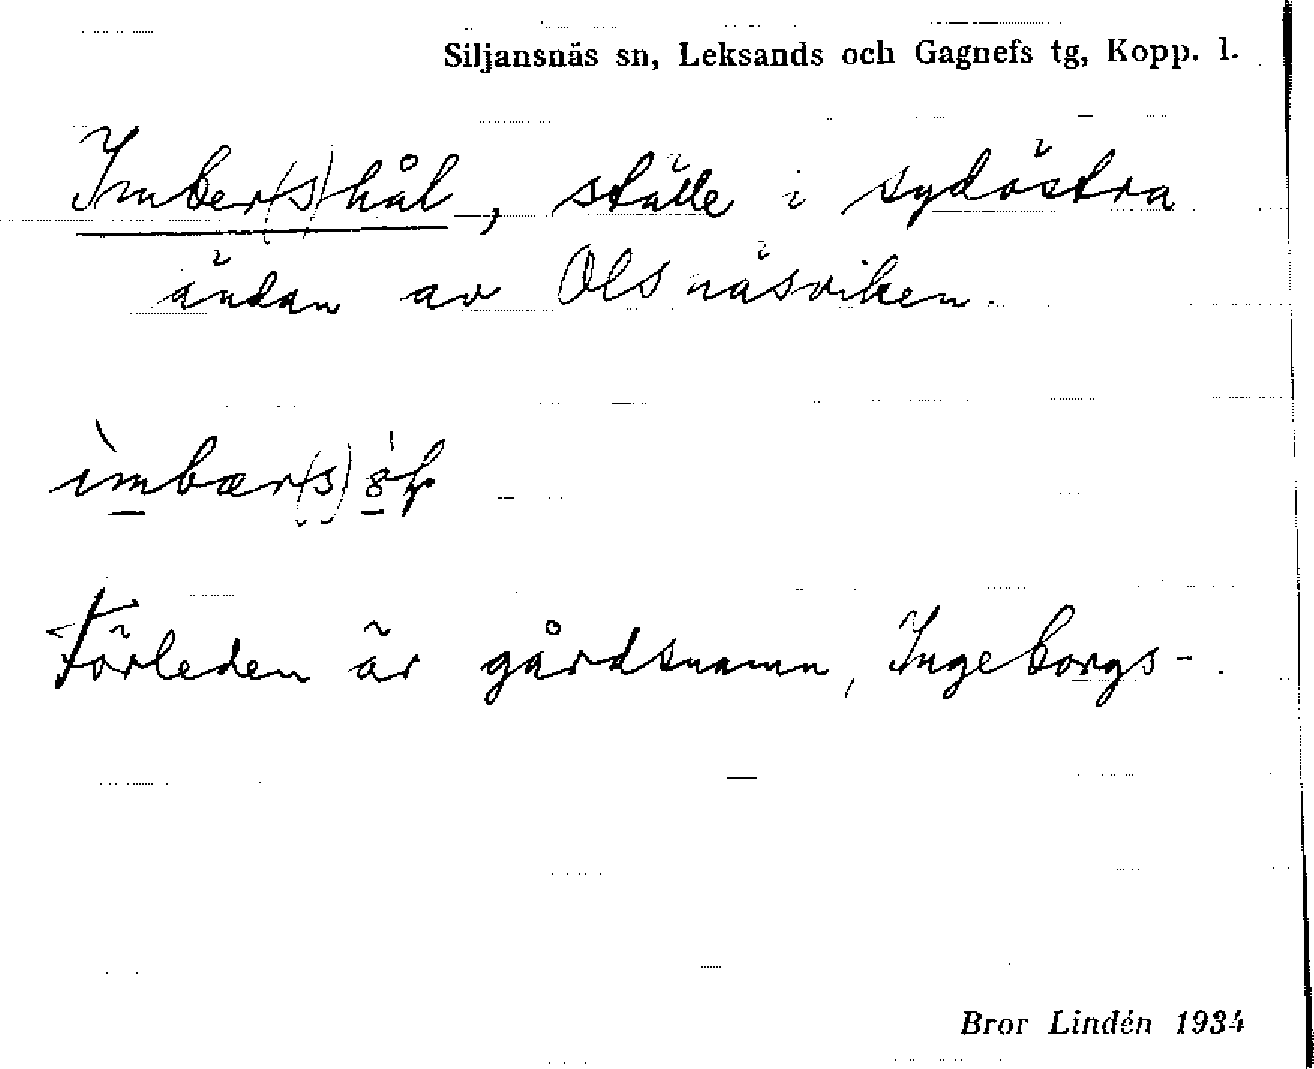 Siljansnäs sn, Leksands och Gagnefs tg, Kopp. l.
Imber(s)hål, ställe i sydöstra
ändan av Olsnäsviken.
Förleden är gårdsnamn, Ingeborgs-.
Bror Lindén 1934